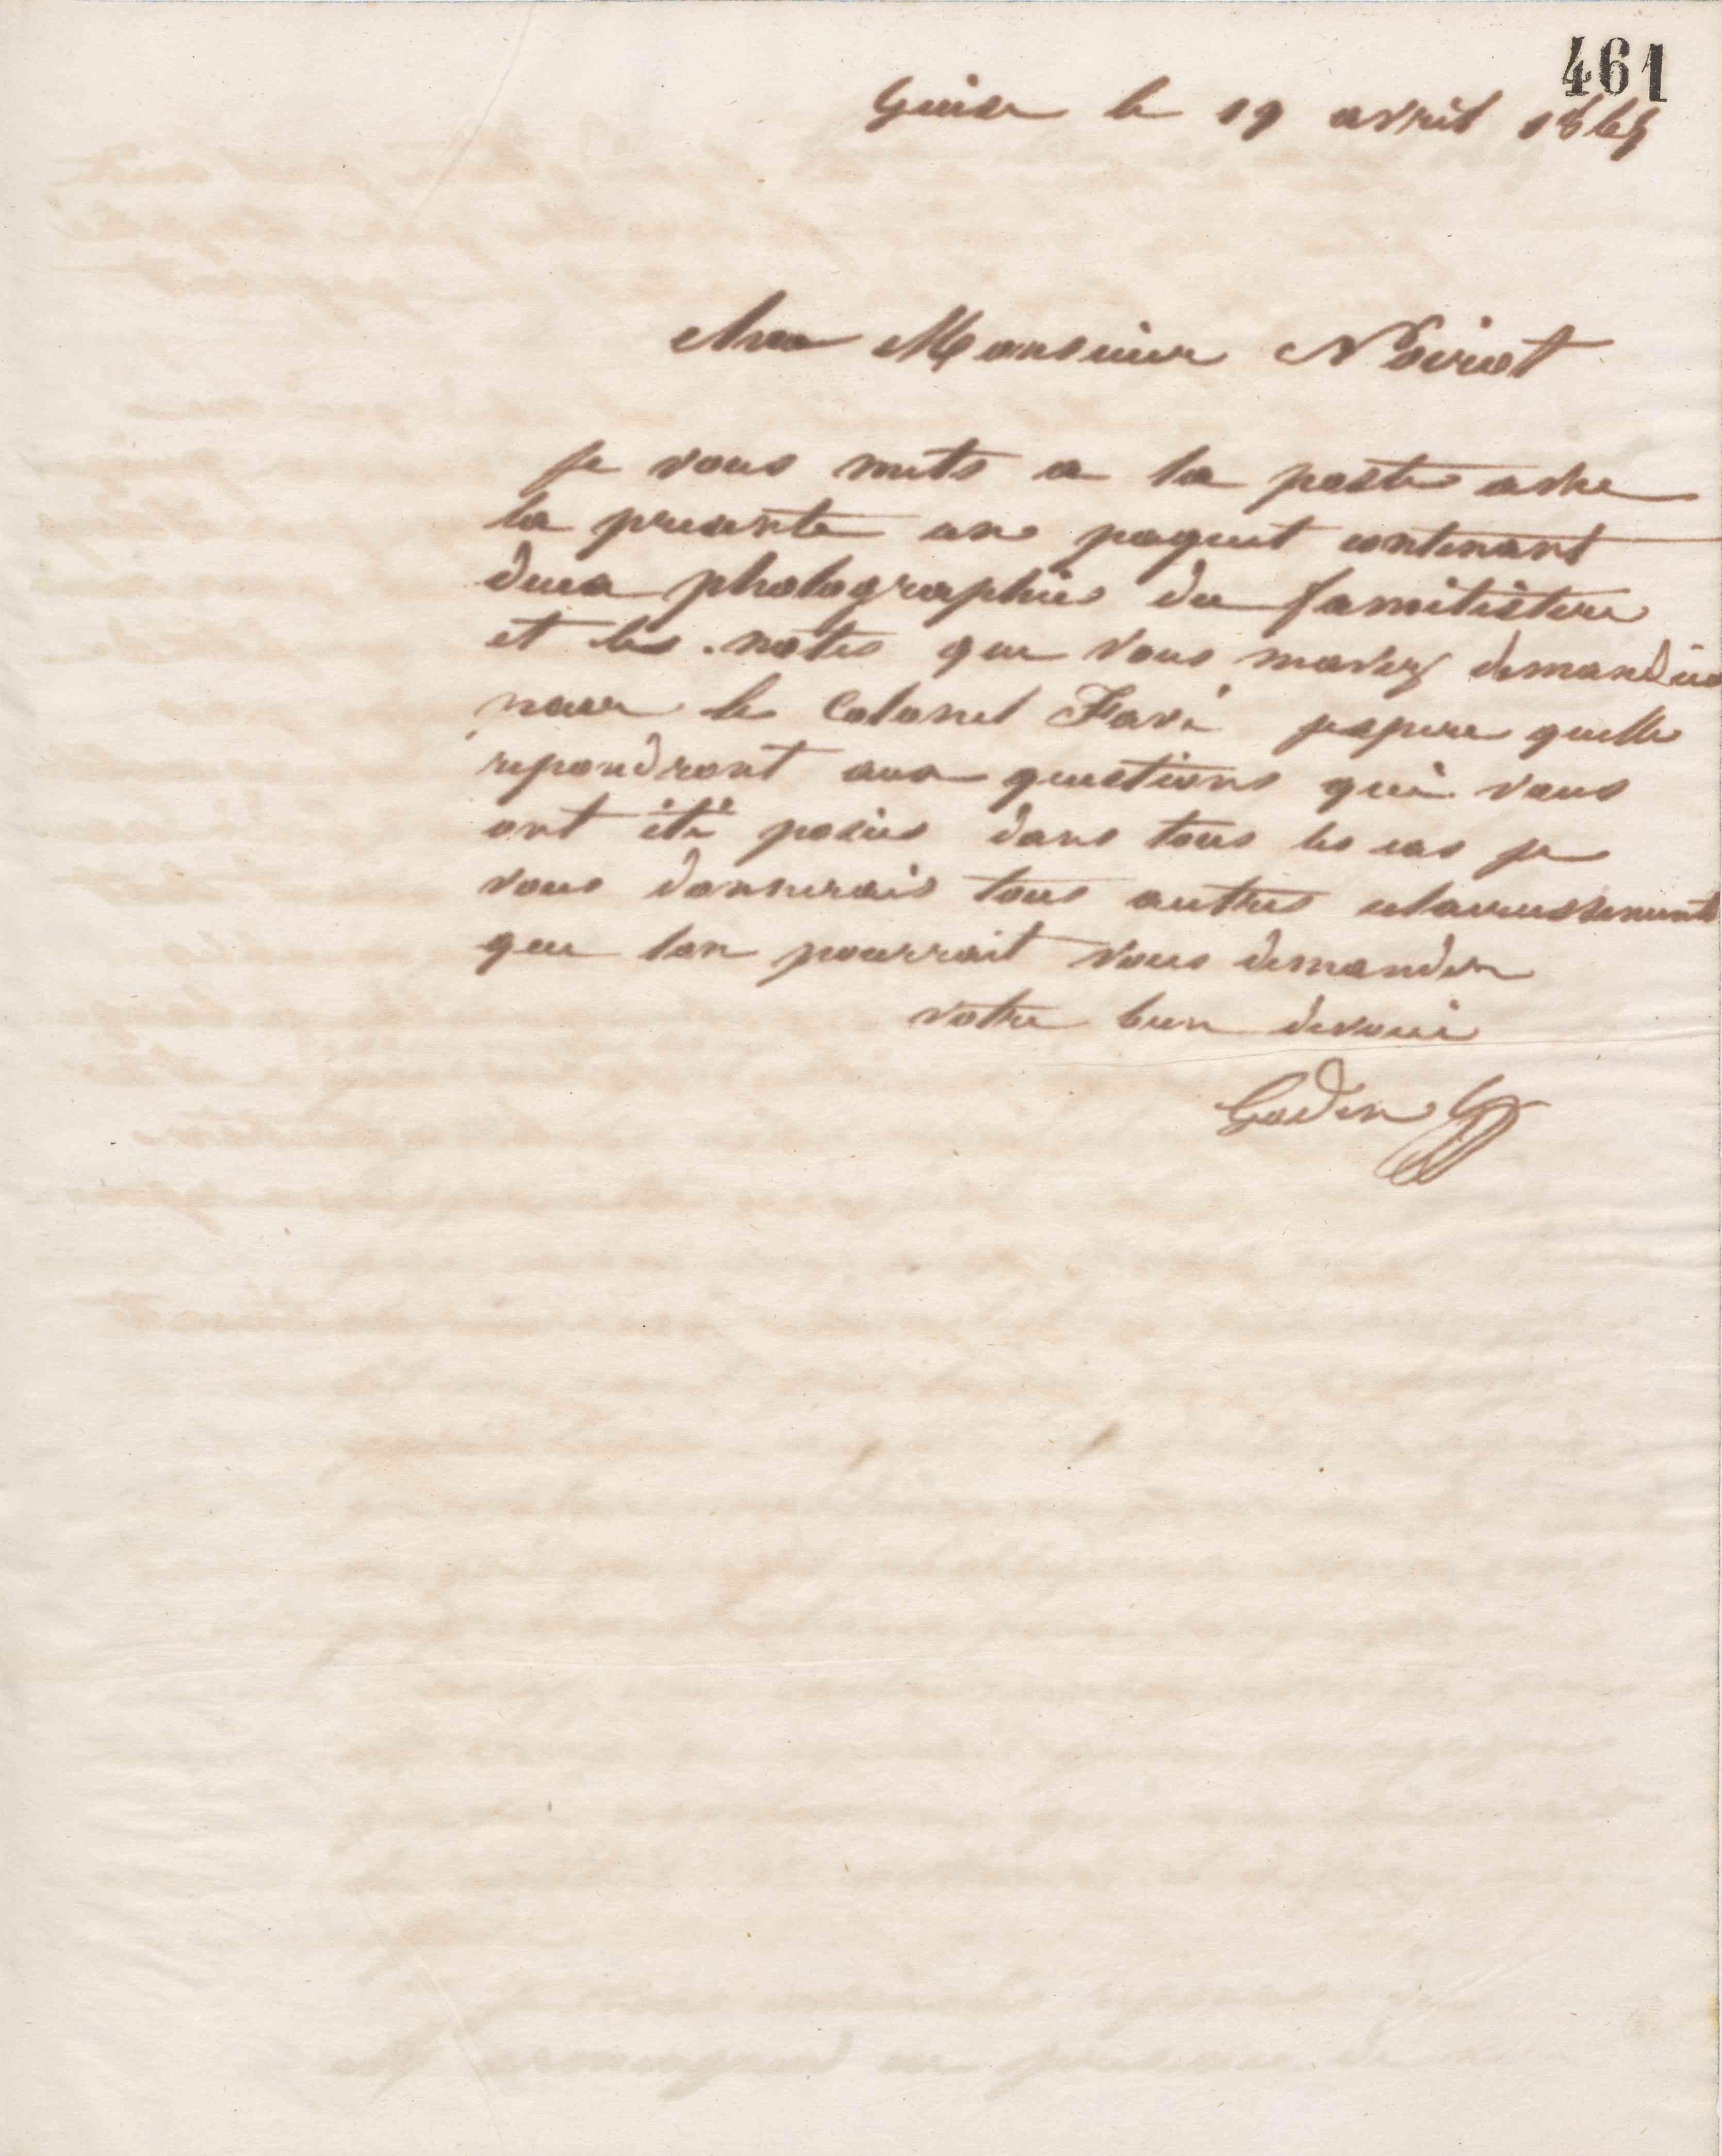 461
Guise le 19 avril 1865
Cher Monsieur Noirot
je vous mets a la poste avec
la presente un paquet contenant
deux photographies du familistere
et les notes que vous mavez demandées
pour le Colonel Favé jespere quelle
repondront aux questions qui vous
ont été posées dans tous les cas je
vous donnerais tous autres eclaircissements
que lon pourrait vous demander
votre bien devoué
Godin